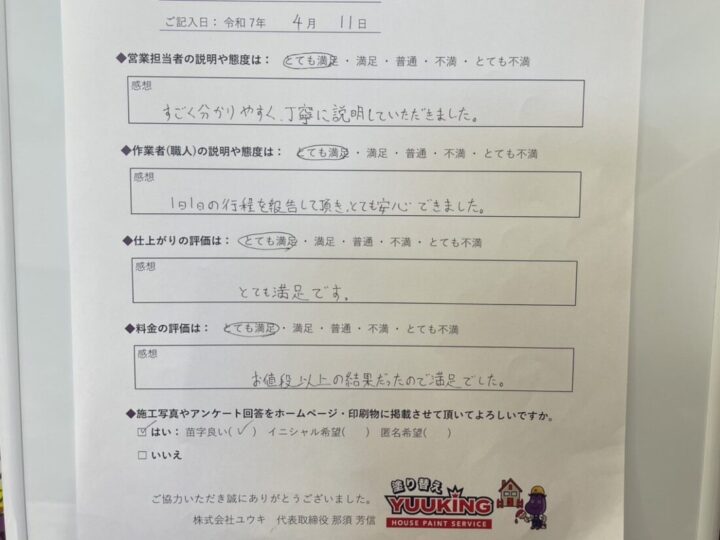 ご記入日：令和7年 4月 11日
◆営業担当者の説明や態度は： とても満足 ・ 満足 ・ 普通 ・ 不満 ・ とても不満
感想
すごく分かりやすく、丁寧に説明していただきました。
◆作業者(職人)の説明や態度は： とても満足 ・ 満足 ・ 普通 ・ 不満 ・ とても不満
感想
1日1日の行程を報告して頂き、とても安心できました。
◆仕上がりの評価は： とても満足 ・ 満足 ・ 普通 ・ 不満 ・ とても不満
感想
とても満足です。
◆料金の評価は： とても満足 ・ 満足 ・ 普通 ・ 不満 ・ とても不満
感想
お値段以上の結果だったので満足でした。
◆施工写真やアンケート回答をホームページ・印刷物に掲載させて頂いてよろしいですか。
☑ はい： 苗字良い(✓) イニシャル希望( ) 匿名希望( )
□ いいえ
ご協力いただき誠にありがとうございました。
株式会社ユウキ 代表取締役 那須 芳信
塗り替え
YUUKING
HOUSE PAINT SERVICE